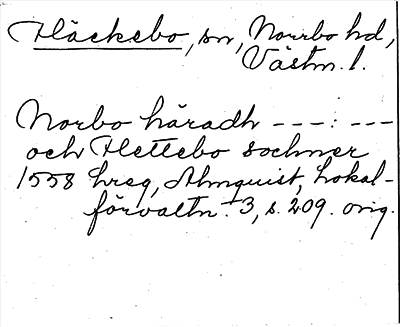 Fläckebo, sn, Norrbo hd,
Västm. l.
Norbo häradh ---:---
och Flettebo sochner
1558 hreg, Almquist, Lokal-
förvaltn. 3, s. 209. orig.